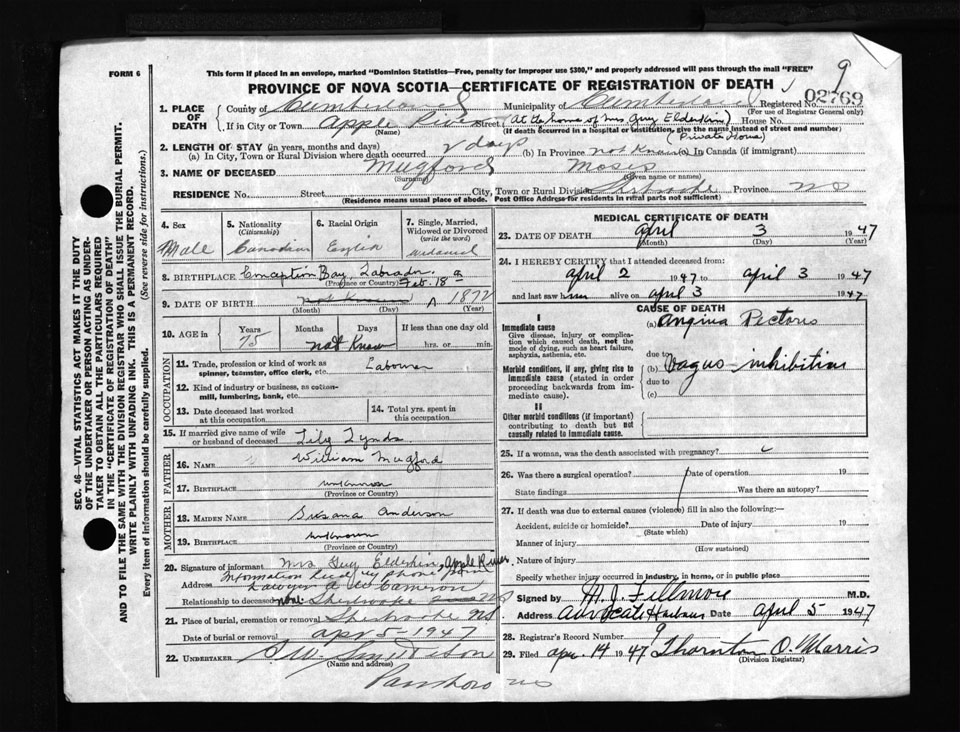 9
FORM 6
This form if placed in an envelope, marked "Dominion Statistics—Free, penalty for improper use $300," and properly addressed will pass through the mail "FREE"
PROVINCE OF NOVA SCOTIA—CERTIFICATE OF REGISTRATION OF DEATH
02769
SEC. 46—VITAL STATISTICS ACT MAKES IT THE DUTY
OF THE UNDERTAKER OR PERSON ACTING AS UNDER-
TAKER TO OBTAIN ALL THE PARTICULARS REQUIRED
IN THE "CERTIFICATE OF REGISTRATION OF DEATH"
AND TO FILE THE SAME WITH THE DIVISION REGISTRAR WHO SHALL ISSUE THE BURIAL PERMIT.
WRITE PLAINLY WITH UNFADING INK. THIS IS A PERMANENT RECORD.
Every item of information should be carefully supplied. (See reverse side for instructions.)
1. PLACE OF DEATH County of Cumberland Municipality of Cumberland Registered No.
(For use of Registrar General only)
If in City or Town Apple River Street (At the home of Mrs Guy Elderkin) House No.
(Name) (If death occurred in a hospital or institution, give the name instead of street and number)
(Private Home)
2. LENGTH OF STAY (in years, months and days)
(a) In City, Town or Rural Division where death occurred 2 days (b) In Province not Known (c) In Canada (if immigrant)
3. NAME OF DECEASED Mugford Moses
(Surname) (Given name or names)
RESIDENCE No. Street City, Town or Rural Division Sherbrooke Province NS
(Residence means usual place of abode. Post Office Address for residents in rural parts not sufficient)
4. Sex Male
5. Nationality (Citizenship) Canadian
6. Racial Origin English
7. Single, Married, Widowed or Divorced (write the word)
8. BIRTHPLACE Conception Bay, Labrador
(Province or Country) Feb. 18
9. DATE OF BIRTH not Known 1872
(Month) (Day) (Year)
10. AGE in Years 75 Months Days not Know If less than one day old hrs. or min.
OCCUPATION
11. Trade, profession or kind of work as spinner, teamster, office clerk, etc. Labourer
12. Kind of industry or business, as cotton-mill, lumbering, bank, etc.
13. Date deceased last worked at this occupation
14. Total yrs. spent in this occupation
15. If married give name of wife or husband of deceased Lily Lynds
FATHER
16. NAME William Mugford
17. BIRTHPLACE unknown
(Province or Country)
MOTHER
18. MAIDEN NAME Susana Anderson
19. BIRTHPLACE unknown
(Province or Country)
20. Signature of informant Mrs Guy Elderkin, Apple River
Information by phone from
Address Lawyer Cameron
Relationship to deceased none Sherbrooke NS
21. Place of burial, cremation or removal Sherbrooke NS
Date of burial or removal apr 5 - 1947
22. UNDERTAKER
(Name and address)
Parrsboro NS
MEDICAL CERTIFICATE OF DEATH
23. DATE OF DEATH April 3 1947
(Month) (Day) (Year)
24. I HEREBY CERTIFY that I attended deceased from:
april 2 1947 to april 3 1947
and last saw him alive on april 3 1947
CAUSE OF DEATH
I
Immediate cause (a) Angina Pectoris
Give disease, injury or complication which caused death, not the mode of dying, such as heart failure, asphyxia, asthenia, etc.
due to
Morbid conditions, if any, giving rise to immediate cause (stated in order proceeding backwards from immediate cause). (b) Vagus inhibition
due to
(c)
II
Other morbid conditions (if important) contributing to death but not causally related to immediate cause.
25. If a woman, was the death associated with pregnancy?
26. Was there a surgical operation? Date of operation 19
State findings Was there an autopsy?
27. If death was due to external causes (violence) fill in also the following:—
Accident, suicide or homicide? Date of injury 19
(State which)
Manner of injury
(How sustained)
Nature of injury
Specify whether injury occurred in industry, in home, or in public place
Signed by H. J. Fillmore M.D.
Address Advocate Harbour Date April 5 1947
28. Registrar's Record Number 9
29. Filed apr. 14 1947 Thornton O. Morris
(Division Registrar)